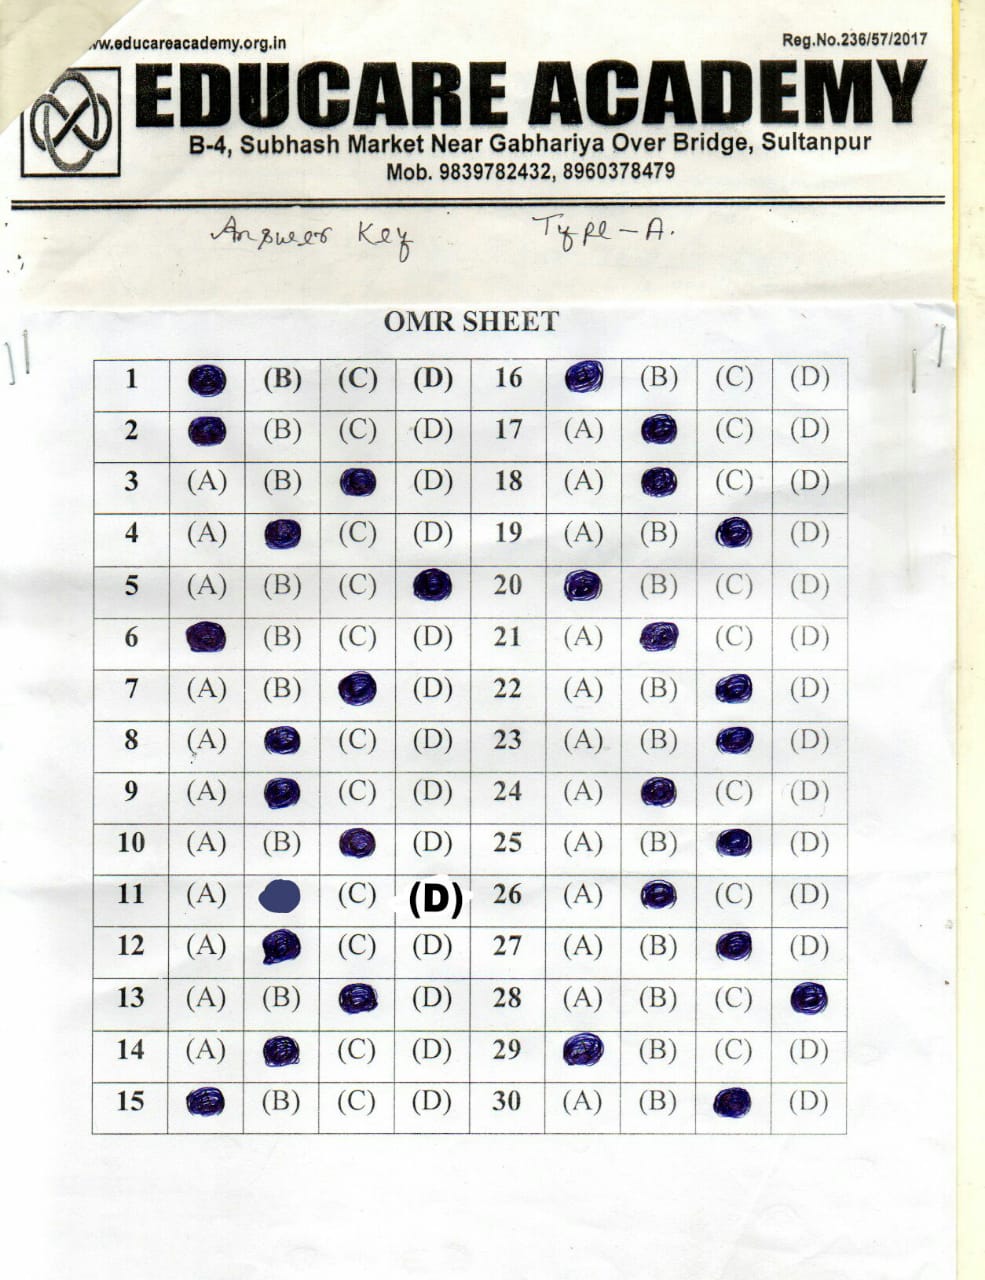 ww.educareacademy.org.in Reg.No.236/57/2017
EDUCARE ACADEMY
B-4, Subhash Market Near Gabhariya Over Bridge, Sultanpur
Mob. 9839782432, 8960378479
Answer Key Type-A.
OMR SHEET
1 (B) (C) (D) 16 (B) (C) (D)
2 (B) (C) (D) 17 (A) (C) (D)
3 (A) (B) (D) 18 (A) (C) (D)
4 (A) (C) (D) 19 (A) (B) (D)
5 (A) (B) (C) 20 (B) (C) (D)
6 (B) (C) (D) 21 (A) (C) (D)
7 (A) (B) (D) 22 (A) (B) (D)
8 (A) (C) (D) 23 (A) (B) (D)
9 (A) (C) (D) 24 (A) (C) (D)
10 (A) (B) (D) 25 (A) (B) (D)
11 (A) (C) (D) 26 (A) (C) (D)
12 (A) (C) (D) 27 (A) (B) (D)
13 (A) (B) (D) 28 (A) (B) (C)
14 (A) (C) (D) 29 (B) (C) (D)
15 (B) (C) (D) 30 (A) (B) (D)